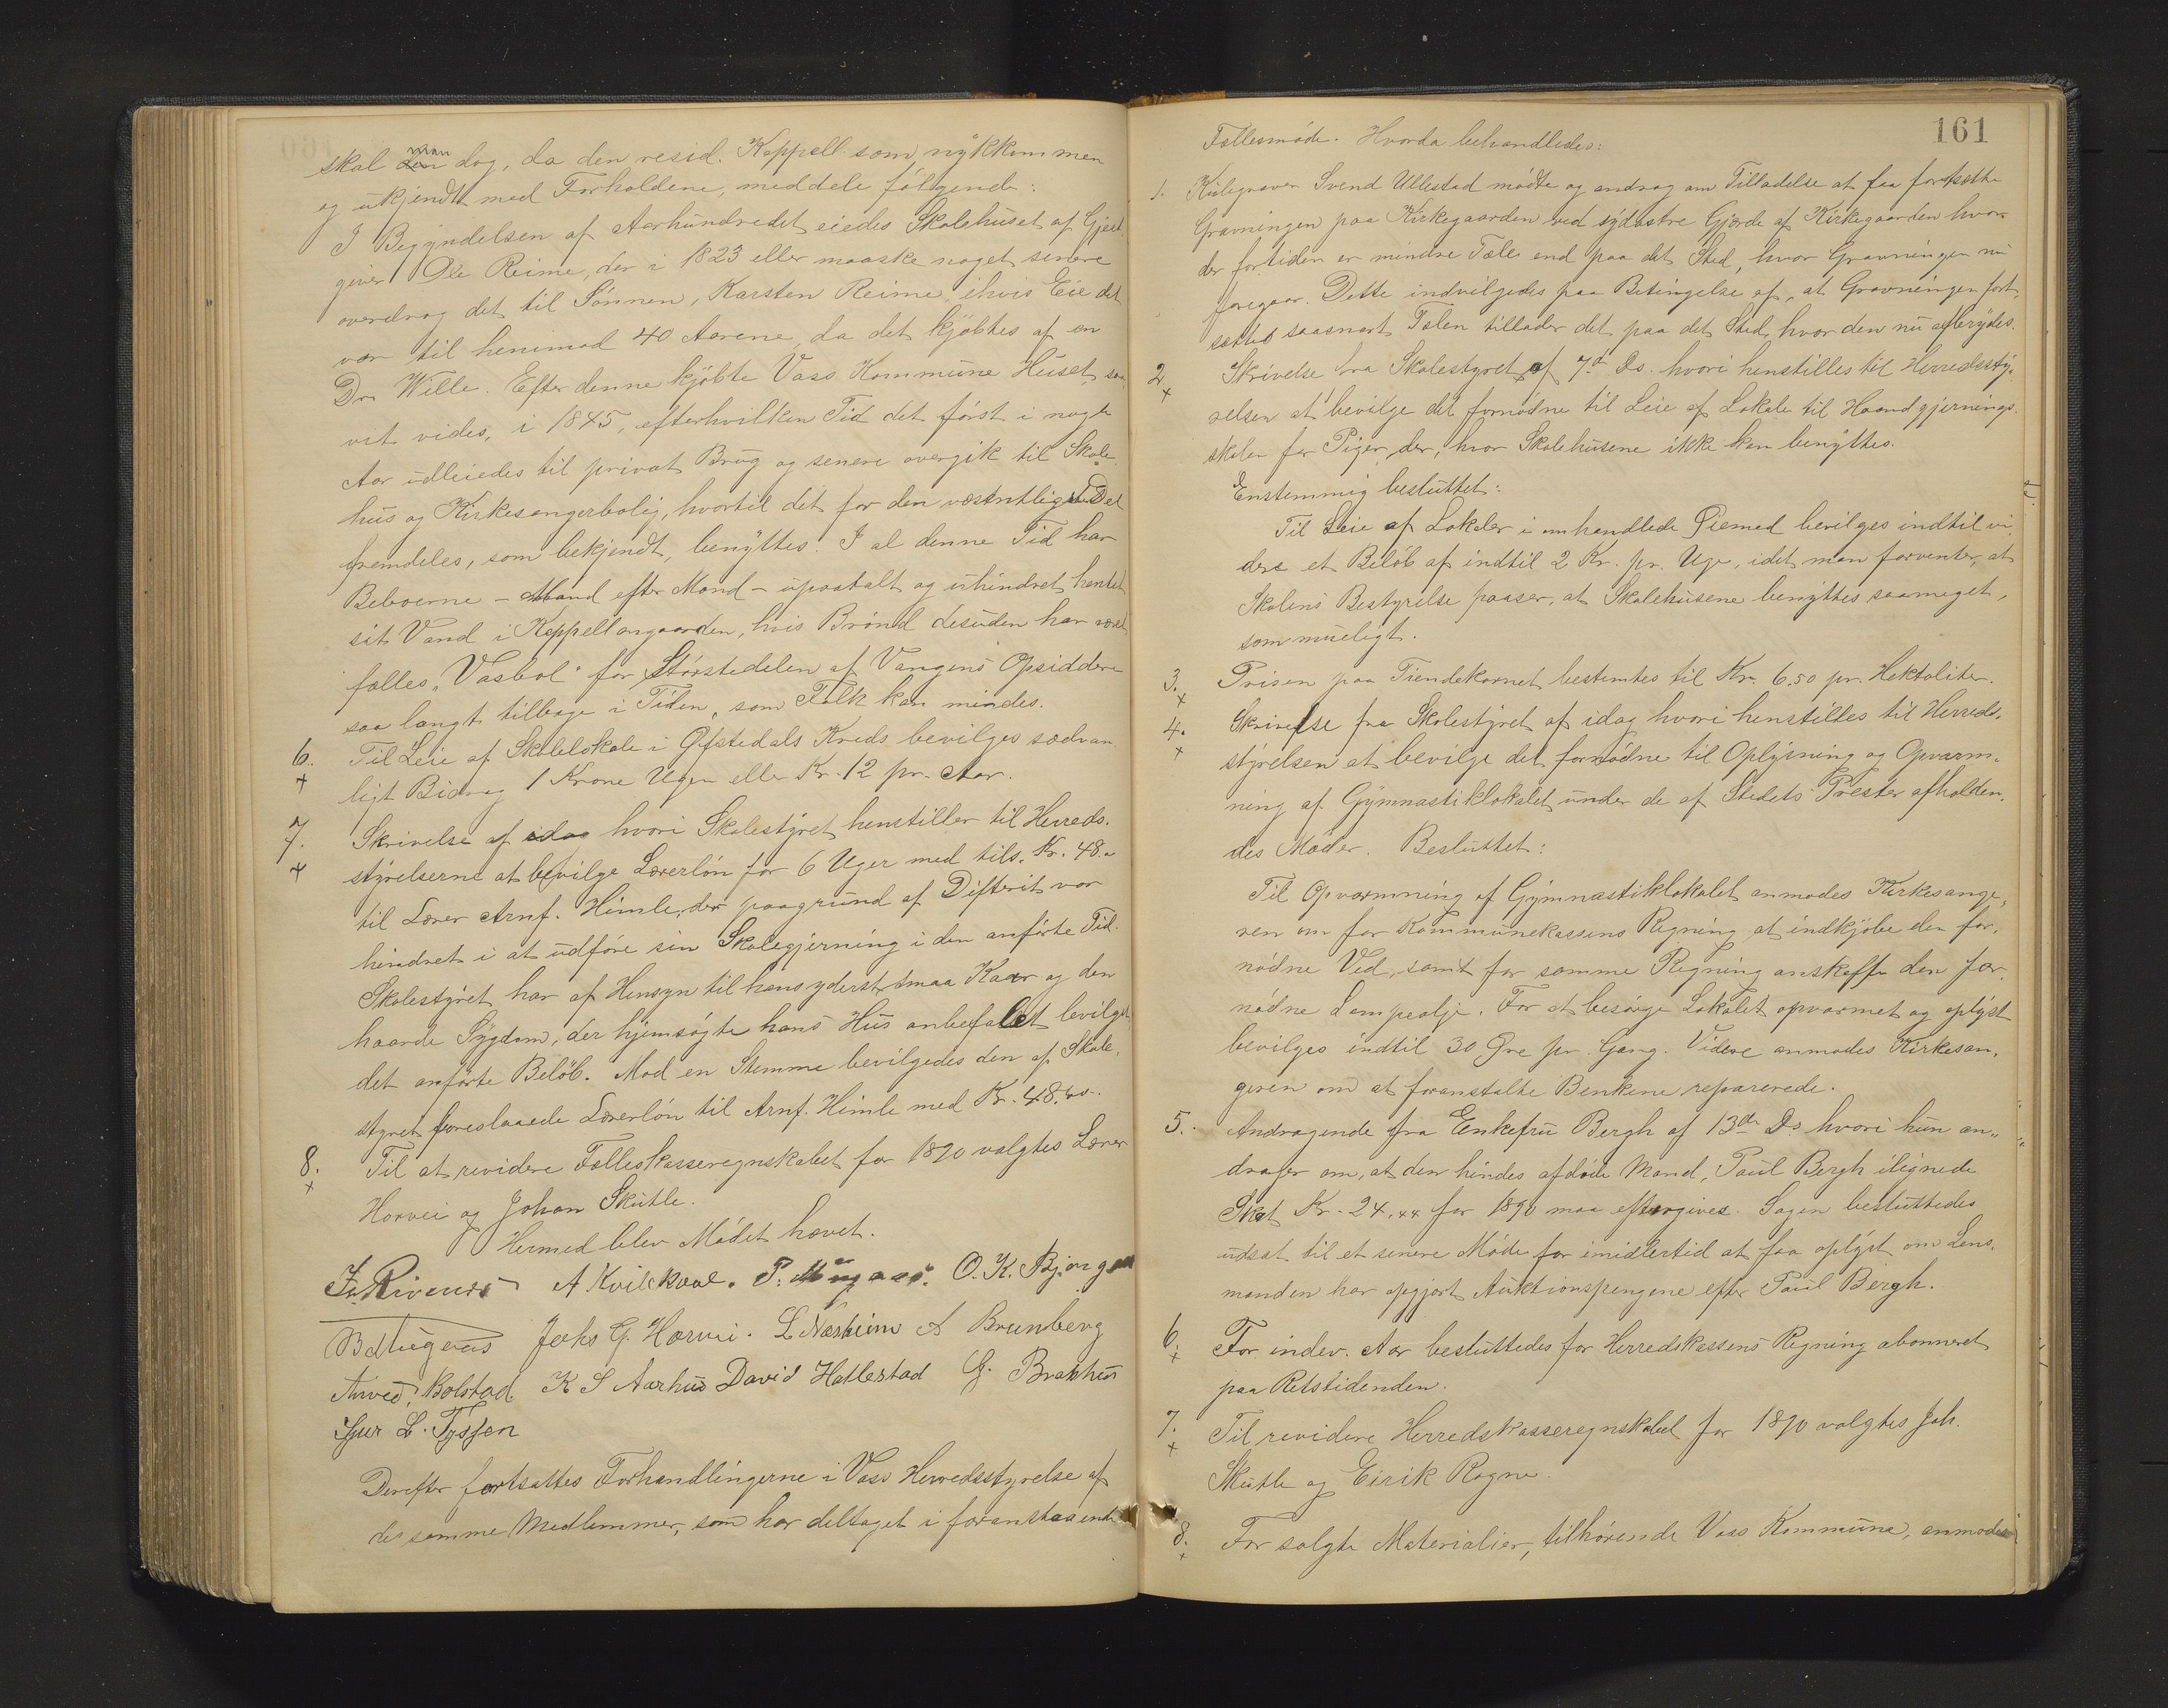 skal man dog, da den resid. Kappell. som nykkommen
og ukjendt med Forholdene, meddele følgende:
I Begyndelsen af Aarhundredet eiedes Skolehuset af Gjest-
giver Ole Reime, der i 1823 eller maaske noget senere
overdrog det til Sønnen, Karsten Reime, i hvis Eie det
var til henimod 40 Aarene, da det kjøbtes af en
Dr. Wille. Efter denne kjøbte Voss Kommune Huset, saa-
vit vides, i 1845, efter hvilken Tid det først i nogle
Aar udleiedes til privat Brug og senere overgik til Skole-
hus og Kirkesangerbolig, hvortil det for den væsentligste Del
fremdeles, som bekjendt, benyttes. I al denne Tid har
Beboerne – Mand efter Mand – upaatalt og uhindret hentet
sit Vand i Kappellangaarden, hvis Brønd desuden har været
fælles "Vasbøl" for Størstedelen af Vangens Opsiddere
saa langt tilbage i Tiden, som Folk kan mindes.
6. Til Leie af Skolelokale i Gjfstedals Kreds bevilges sædvan-
ligt Bidrag 1 Krone Ugen eller Kr. 12 pr. Aar.
7. Skrivelse af idag hvori Skolestyret henstiller til Herreds-
styrelserne at bevilge Lærerløn for 6 Uger med tils. Kr. 48.-
til Lærer Arnf. Himle, der paagrund af Difterit var
hindret i at udføre sin Skolegjerning i den anførte Tid.
Skolestyret har af Hensyn til hans yderst smaa Kaar og den
haarde Sygdom, der hjemsøgte hans Hus anbefalet bevilget
det anførte Beløb. Mod en Stemme bevilgedes den af Skole-
styret foreslaaede Lærerløn til Arnf. Himle med Kr. 48.00.
8. Til at revidere Fælleskasseregnskabet for 1890 valgtes Lærer
Horvei og Johan Skutle.
Hermed blev Mødet hævet.
A Kvilekval. O. K. Bjørge
Joh G. Horvei. L Næsheim A Brunberg
Bolstad K S Aarhus David Hatlestad G. Brækhus
Sjur L. Tøssen
Derefter fortsattes Forhandlingerne i Voss Herredsstyrelse af
de samme Medlemmer, som har deltaget i foranstaaende
161
Fællesmøde. Hvorda behandledes:
1. Kulegraver Svend Ullestad mødte og androg om Tilladelse at faa fortsætte
Gravningen paa Kirkegaarden ved sydøstre Gjerde af Kirkegaarden hvor
der for tiden er mindre Tæle end paa det Sted, hvor Gravningen nu
foregaar. Dette indvilgedes paa Betingelse af, at Gravningen fort-
sættes saasnart Tælen tillader det paa det Sted, hvor den nu afbrydes.
2. Skrivelse fra Skolestyret af 7de Ds. hvori henstilles til Herredssty-
relsen at bevilge det fornødne til Leie af Lokale til Haandgjernings-
skolen for Piger der, hvor Skolehusene ikke kan benyttes.
Enstemmig besluttet:
Til Leie af Lokaler i omhandlede Øiemed bevilges indtil vi-
dere et Beløb af indtil 2 Kr. pr. Uge, idet man forventer, at
Skolens Bestyrelse paaser, at Skolehusene benyttes saameget,
som mueligt.
3. Prisen paa Tiendekornet bestemtes til Kr. 6.50 pr. Hektoliter.
4. Skrivelse fra Skolestyret af idag hvori henstilles til Herreds-
styrelsen at bevilge det fornødne til Oplysning og Opvarm-
ning af Gymnastiklokalet under de af Stedets Prester afholden-
des Møder. Besluttet:
Til Opvarmning af Gymnastiklokalet anmodes Kirkesange-
ren om for Kommunekassens Regning at indkjøbe den for-
nødne Ved, samt for samme Regning anskaffe den for-
nødne Lampeolje. For at besørge Lokalet opvarmet og oplyst
bevilges indtil 30 Øre pr. Gang. Videre anmodes Kirkesan-
geren om at foranstalte Benkene reparerede.
5. Andragende fra Enkefru Bergh af 13de Ds hvori hun an-
drager om, at den hindes afdøde Mand, Paul Bergh ilignede
Skat Kr. 24,44 for 1890 maa eftergives. Sagen besluttedes
udsat til et senere Møde for imidlertid at faa oplyst om Lens-
manden har opgjort Auktionspengene efter Paul Bergh.
6. For indev. Aar besluttedes for Herredskassens Regning abonneret
paa Retstidenden.
7. Til revidere Herredskasseregnskabet for 1890 valgtes Joh.
Skutle og Eirik Rogne.
8. For solgte Materialier, tilhørende Voss Kommune, anmodes